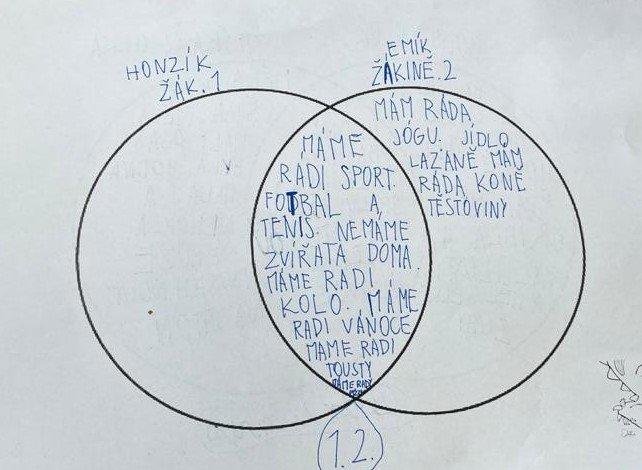 HONZÍK
ŽÁK.1
EMÍK
ŽÁKINĚ.2
MÁME
RADI SPORT.
FOTBAL A
TENIS. NEMÁME
ZVÍŘATA DOMA.
MÁME RADI
KOLO. MÁME
RADI VÁNOCE
MAME RADI
TOUSTY
MÁME RADY
MÁM RÁDA
JÓGU. JÍDLO
LAZÁNĚ MÁM
RÁDA KONĚ
TĚSTOVINY
1.2.